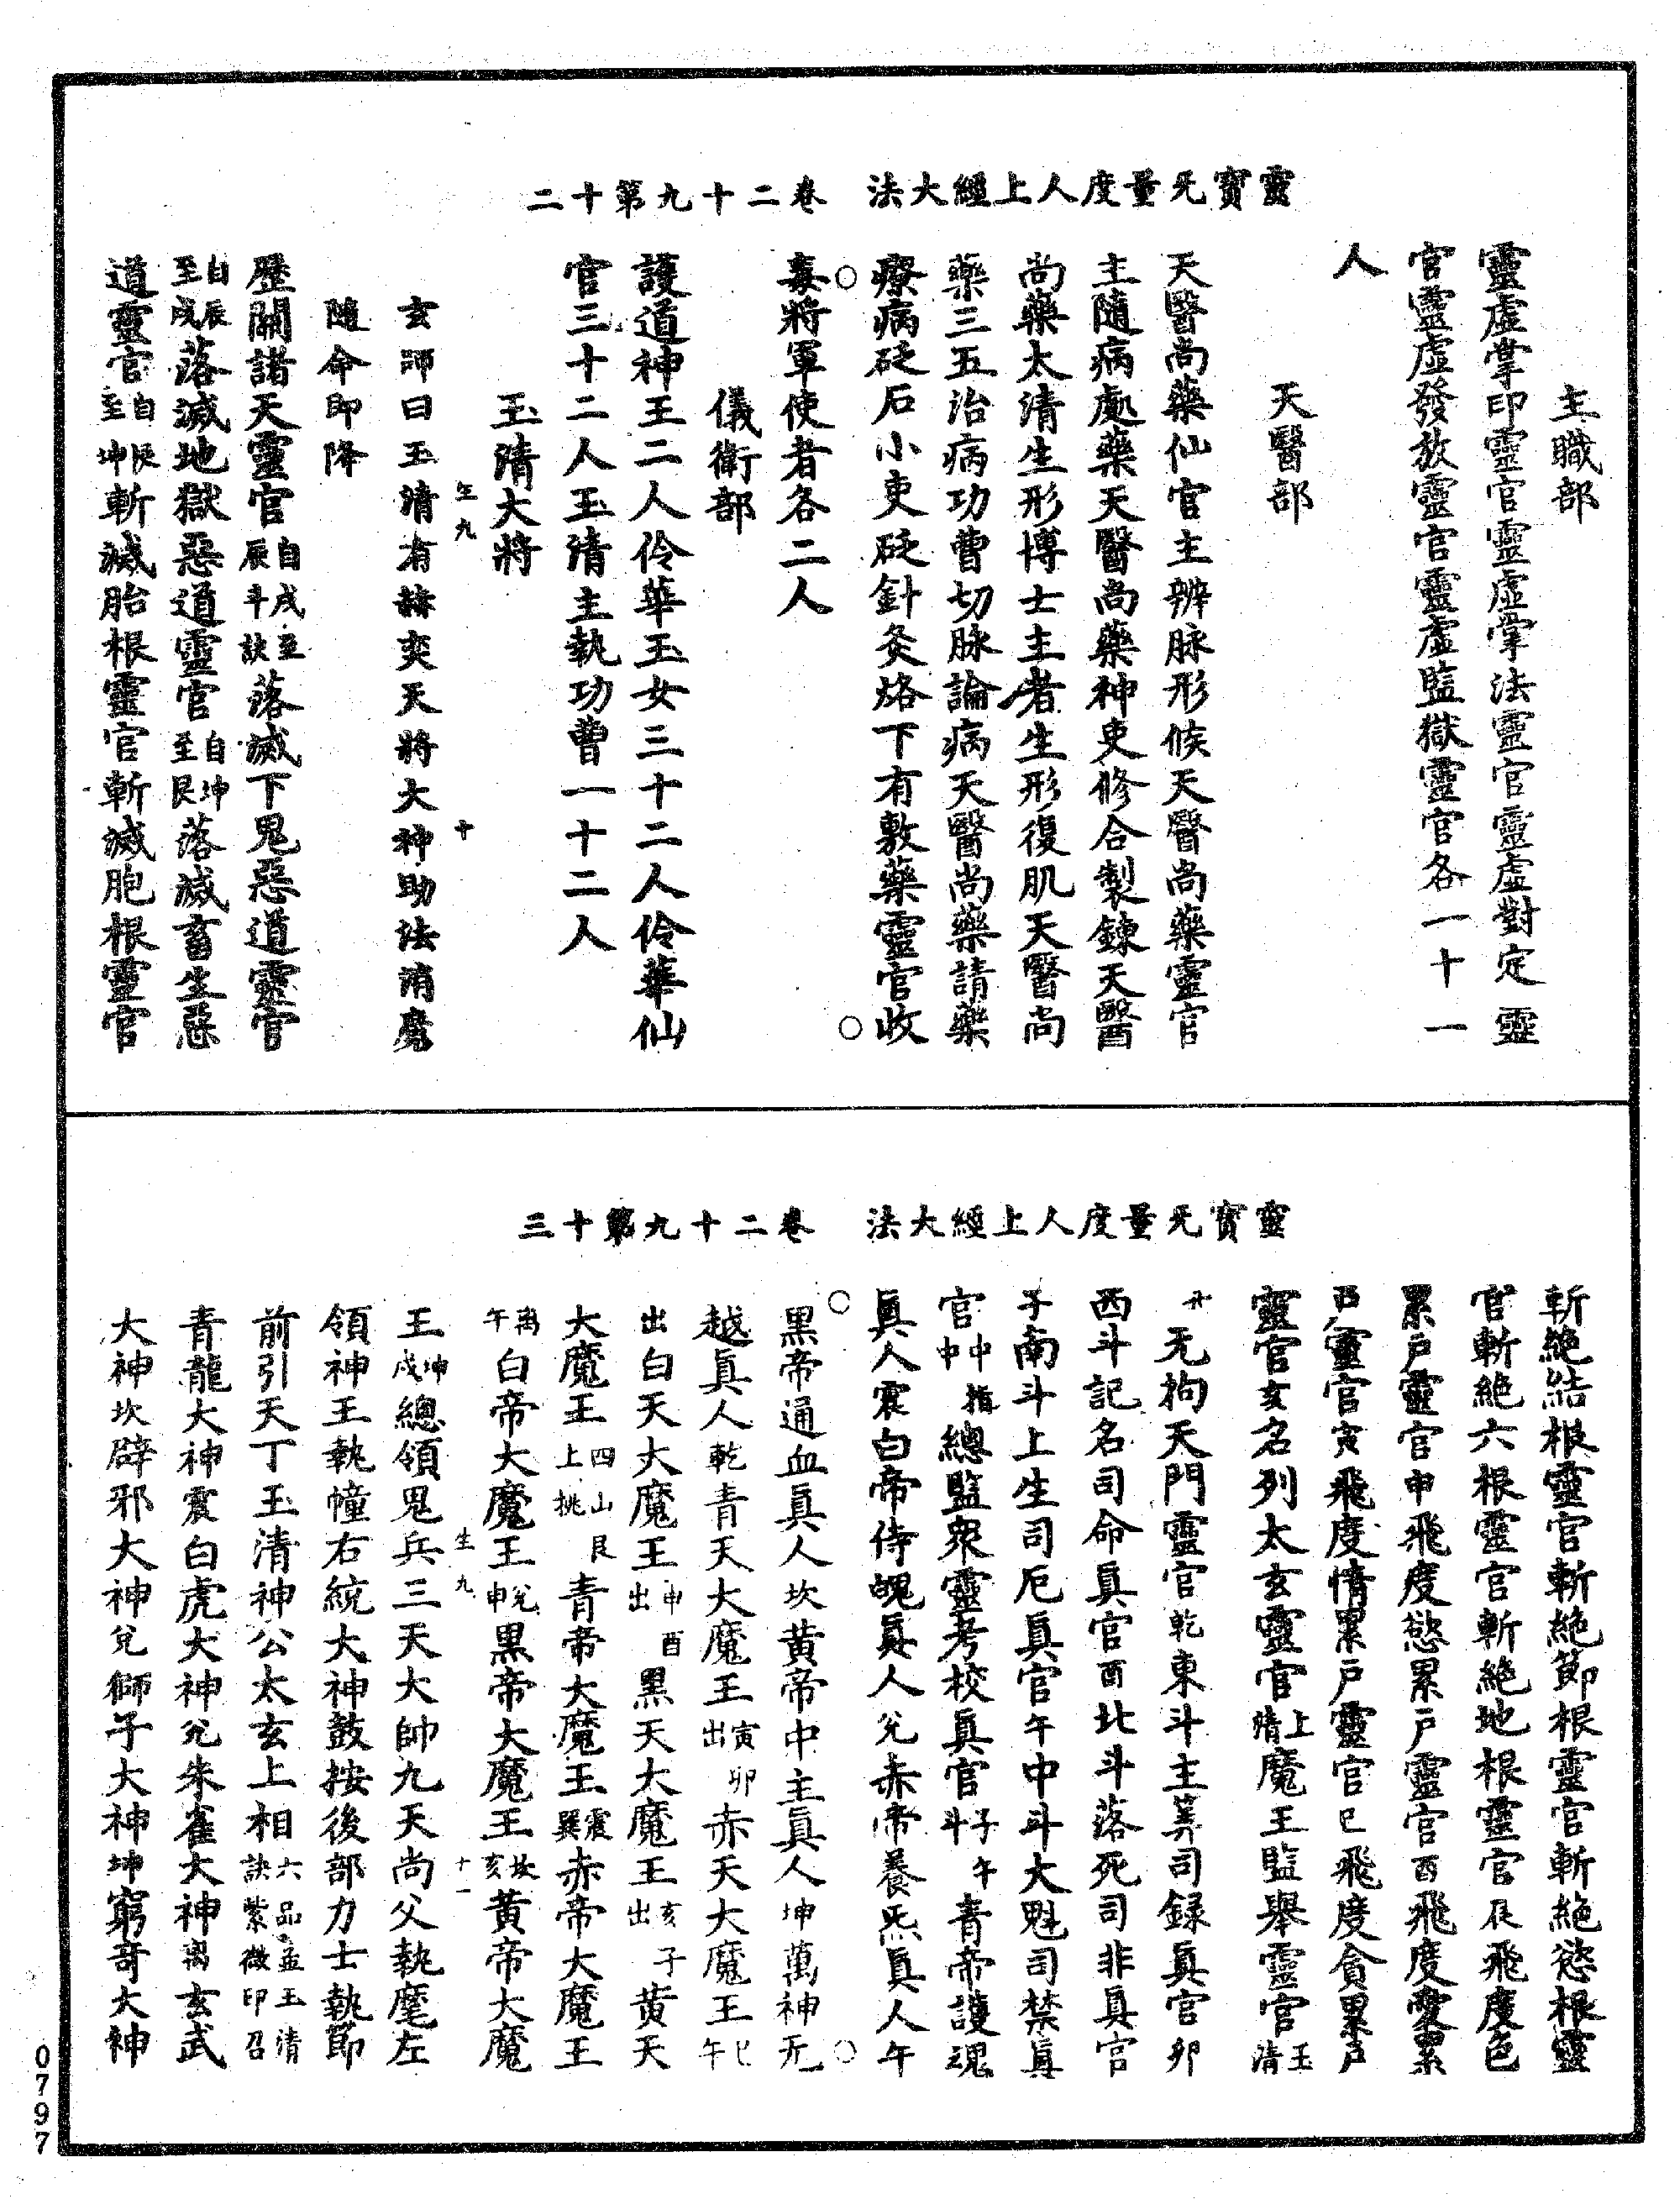 靈寶无量度人上經大法　卷二十九第十二
主職部
靈虛掌印靈官靈虛掌法靈官靈虛對定靈
官靈虛發放靈官靈虛監獄靈官各一十一
人
天醫部
天醫尚藥仙官主辨脉形候天醫尚藥靈官
主隨病處藥天醫尚藥神吏修合製鍊天醫
尚藥太清生形博士主者生形復肌天醫尚
藥三五治病功曹切脉論病天醫尚藥請藥
療病砭石小吏砭針灸烙下有敷藥靈官收
毒將軍使者各二人
儀衛部
護道神王二人伶華玉女三十二人伶華仙
官三十二人玉清主執功曹一十二人
玉清大將
生九　十
玄師曰玉清有赫奕天將大神助法消魔
隨命即降
歷關諸天靈官自戌至辰斗訣落滅下鬼惡道靈官
自辰至戌落滅地獄惡道靈官自坤至艮落滅畜生惡
道靈官自艮至坤斬滅胎根靈官斬滅胞根靈官
靈寶无量度人上經大法　卷二十九第十三
斬絕結根靈官斬絕節根靈官斬絕慾根靈
官斬絕六根靈官斬絕地根靈官辰飛度色
累戶靈官申飛度慾累戶靈官酉飛度愛累
戶靈官寅飛度情累戶靈官巳飛度貪累戶
靈官亥名列太玄靈官上清魔王監舉靈官玉清
无拘天門靈官乾東斗主筭司録真官卯
西斗記名司命真官酉北斗落死司非真官
子南斗上生司厄真官午中斗大魁司禁真
官中指中總監衆靈考校真官子午斗青帝護魂
真人震白帝侍魄真人兌赤帝養炁真人午
黑帝通血真人坎黃帝中主真人坤萬神无
越真人乾青天大魔王寅卯出赤天大魔王巳午
出白天大魔王申酉出黑天大魔王亥子出黃天
大魔王四山上挑青帝大魔王艮震巽赤帝大魔王
離午白帝大魔王兌申黑帝大魔王坎亥黃帝大魔
生九　十一
王坤戌總領鬼兵三天大帥九天尚父執麾左
領神王執幢右統大神鼓按後部力士執節
前引天丁玉清神公太玄上相六品孟玉清訣紫微印召
青龍大神震白虎大神兌朱雀大神離玄武
大神坎辟邪大神兌獅子大神坤窮奇大神
0797